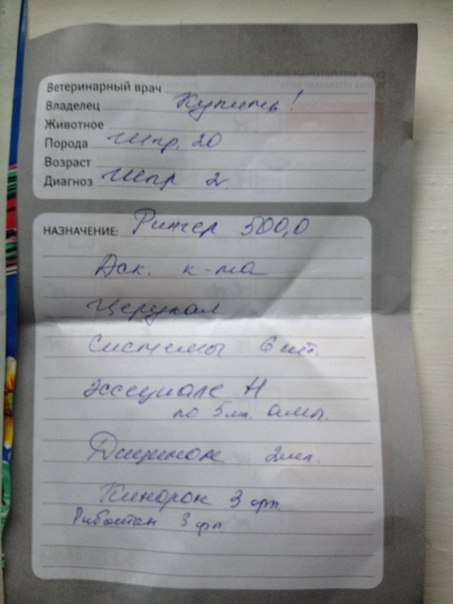 Ветеринарный врач
Владелец Купить!
Животное
Порода Шпр. 20
Возраст
Диагноз Шпр 2
НАЗНАЧЕНИЕ: Рингер 500,0
Аск. к-та
Церукал
Системы 6 шт.
Эссенциале Н
по 5 мл. амп.
Дицинон 2мл.
3 фл.
3 фл